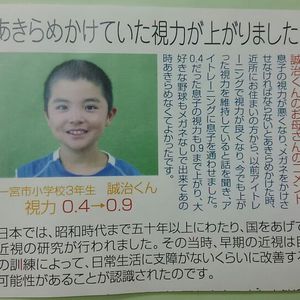 あきらめかけていた視力が上がりました
誠治くんのお母さんのコメント
息子の視力が悪くなり、メガネをかけさ
せなければならないとあきらめかけた時、
近所にお住まいの方から、以前アイトレ
ーニングで視力が良くなり、今でも上が
った視力を維持していると話を聞き、ア
イトレーブスに息子を通わせました。
0.4だった息子の視力も0.9まで上がり、大
好きな野球もメガネなしで出来てあの
時あきらめなくてよかったです。
一宮市小学校3年生 誠治くん
視力 0.4→0.9
日本では、昭和時代まで五十年以上にわたり、国をあげて
近視の研究が行われました。その当時、早期の近視は
の訓練によって、日常生活に支障がないくらいに改善する
可能性があることが認識されたのです。